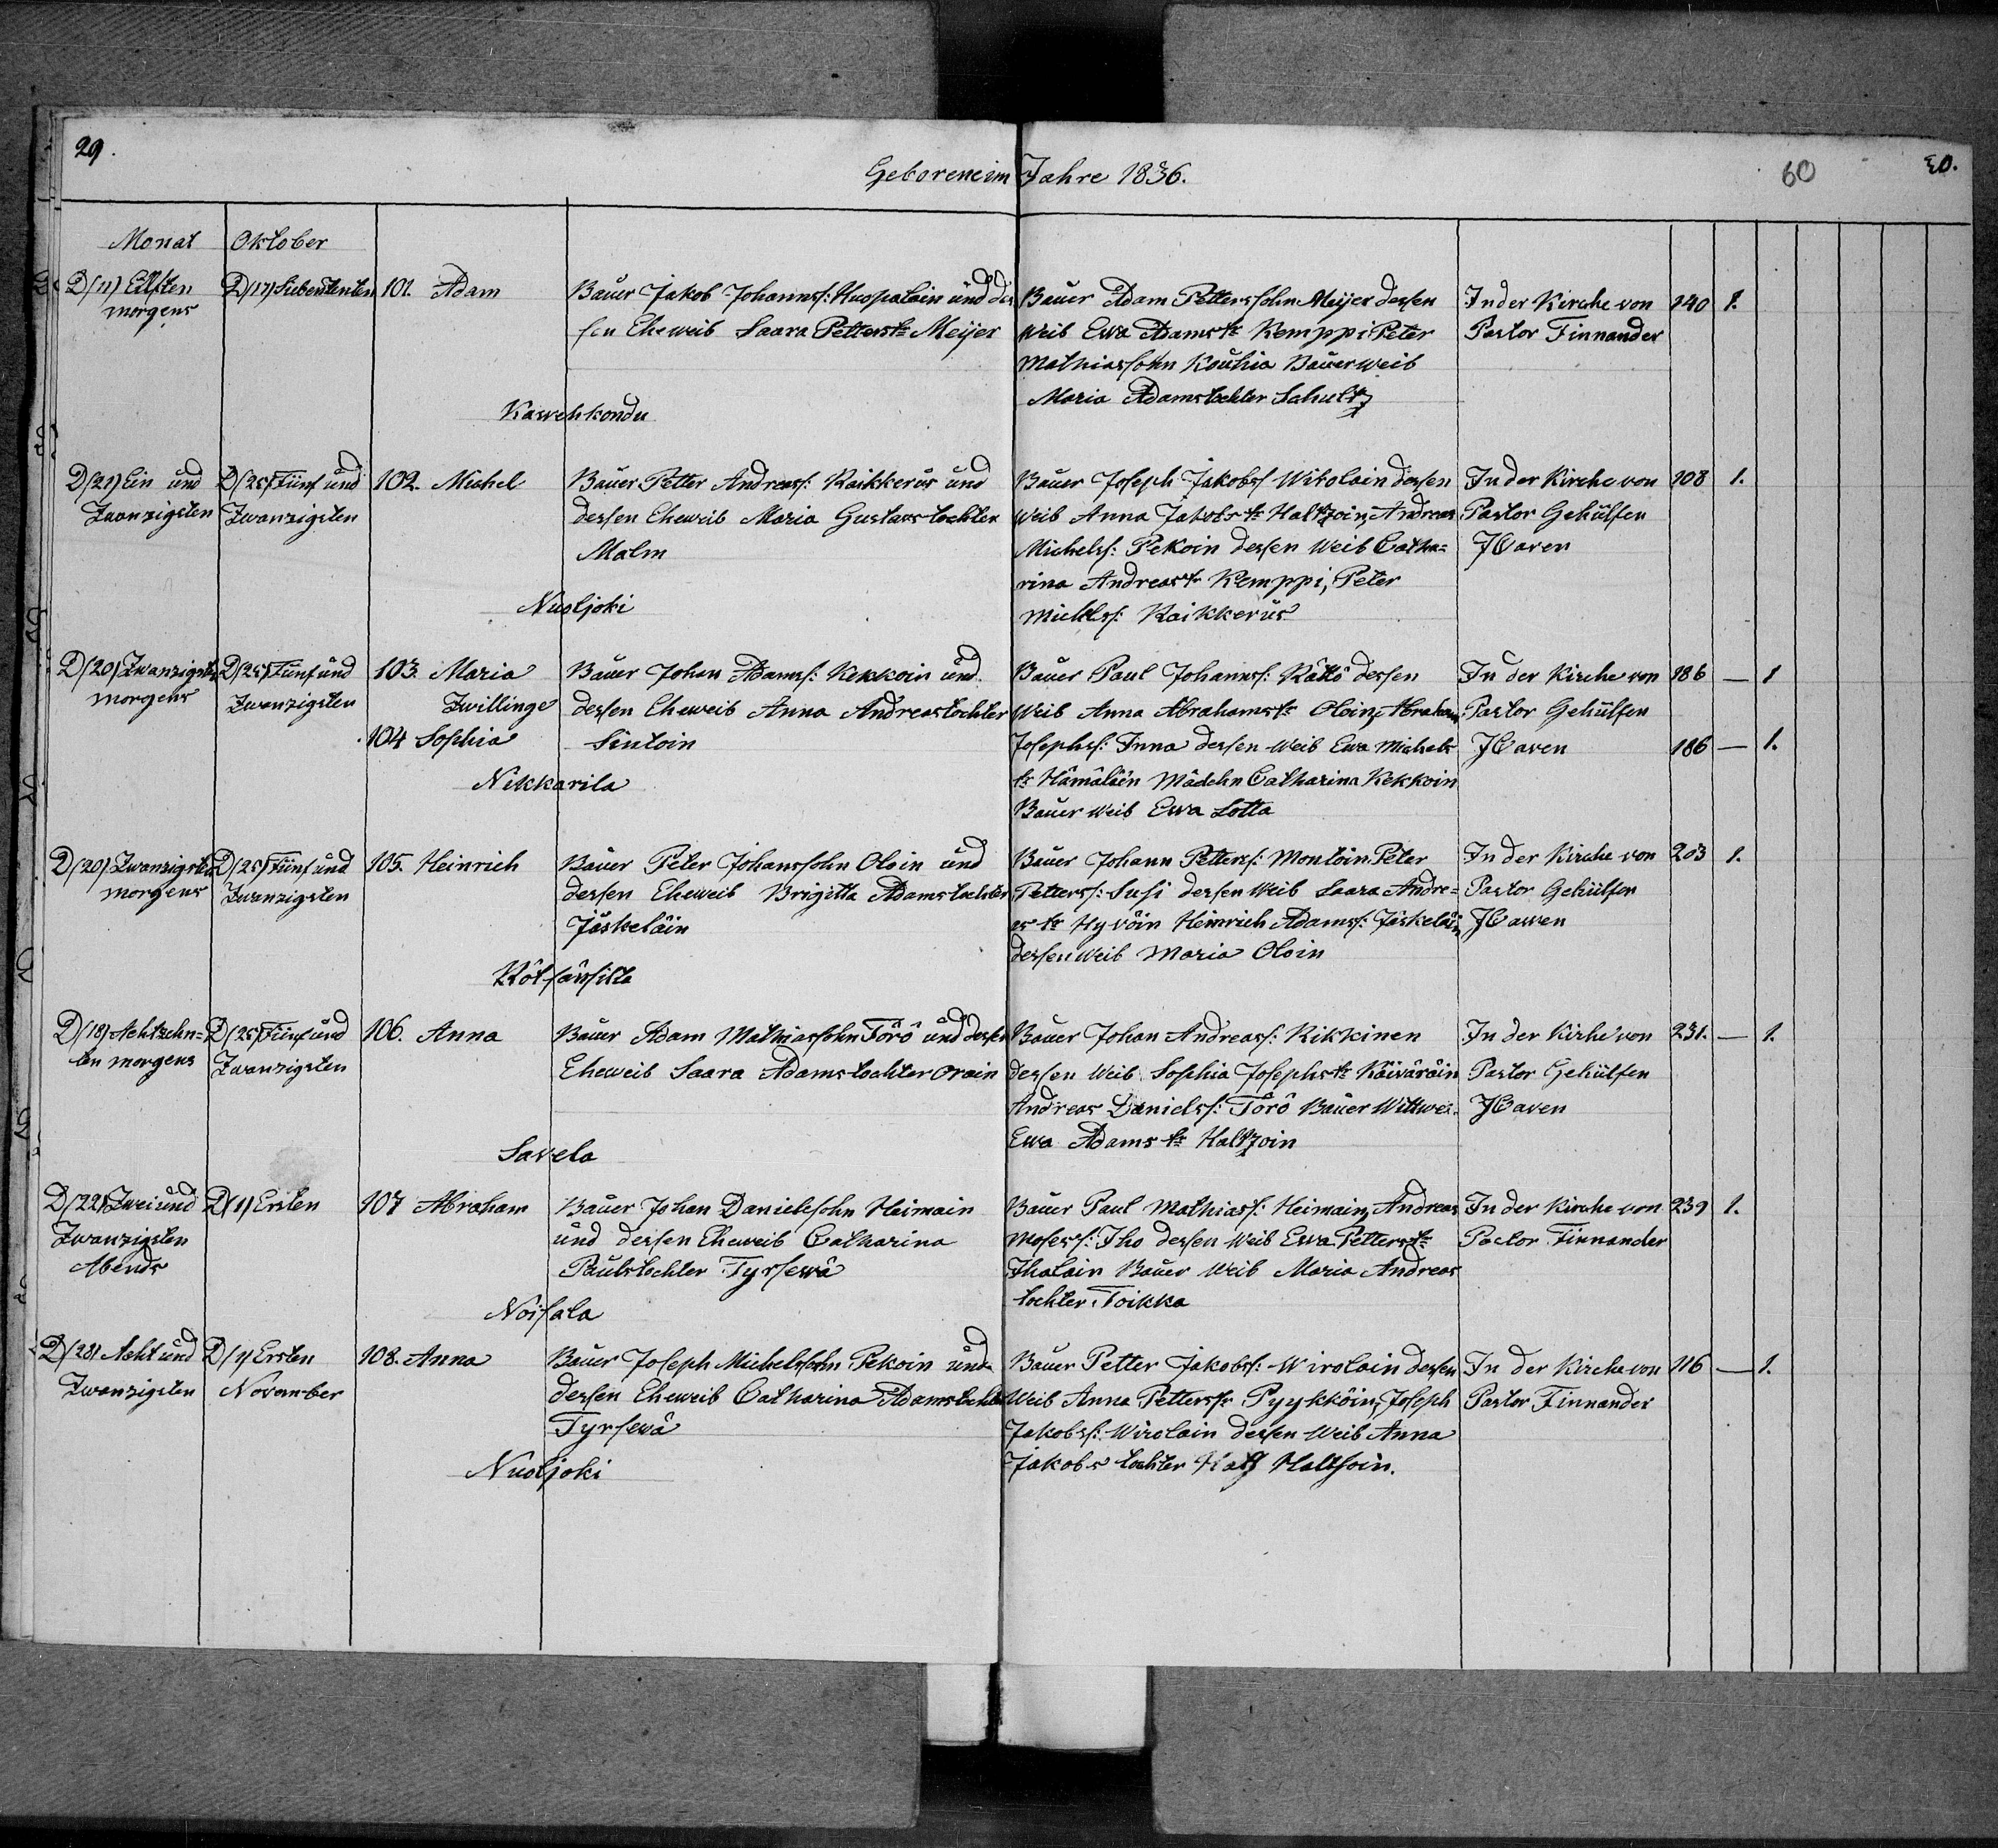 29.
Geborene im Jahre 1836.
60
30.
Monat Oktober
D (11) Elften D (17) Siebententen 101. Adam Bauer Jakob Johanns: Huopalain und des Bauer Adam Petterssohn Meijer dessen In der Kirche von 140 1.
morgens sen Eheweib Saara Petterstr Meijer Weib Ewa Adamstr Kemppi Peter Pastor Finnander
Mathiassohn Kouhia Bauerweib
Maria Adamstochter Schultz
Kawehkondu
D (21) Ein und D (25) Fünf und 102. Michel Bauer Petter Andreass: Raikkerus und Bauer Joseph Jakobss Wirolain dessen In der Kirche von 108 1.
Zwanzigsten Zwanzigsten dessen Eheweib Maria Gustavstochter Weib Anna Jakobstr Haltzoin, Andreas Pastor Gehülfen
Malm Michelss: Pekoin dessen Weib Catha= JHaven
rina Andreastr Kemppi, Peter
Nuoljoki Michlss: Raikkerus
D (20) Zwanzigsten D (25) Fünf und 103. Maria Bauer Johan Adamss: Kekkoin und Bauer Paul Johanns: Rättö dessen In der Kirche von 186 — 1
morgens Zwanzigsten Zwillinge dessen Eheweib Anna Andreastochter Weib Anna Abrahamstr Oloin, Abraham Pastor Gehülfen
104 Sophia Sintoin Josephss: Inna dessen Weib Ewa Michels JHaven 186 — 1.
Nikkarila tr Hämäläin Mädchn Catharina Kekkoin
Bauer weib Ewa Lotta
D (20) Zwanzigsten D (25) Fünf und 105. Heinrich Bauer Peter Johanssohn Oloin und Bauer Johann Petterss: Montoin Peter In der Kirche von 203 1.
morgens Zwanzigsten dessen Eheweib Brigitta Adamstochter Petterss: Susi dessen Weib Saara Andre= Pastor Gehülfen
Jäskeläin as tr Hyvöin Heinrich Adamss: Jäskeläin JHaven
dessen Weib Maria Oloin
D (18) Achtzehn= D (25) Fünf und 106. Anna Bauer Adam Mathiassohn Törö und dessen Bauer Johan Andreass: Kikkinen In der Kirhe von 231. — 1.
ten morgens Zwanzigsten Eheweib Saara Adamstochter Orain dessen Weib Sophia Josephstr Köiväräin Pastor Gehülfen
Andreas Danielss: Törö Bauer Wittwe JHaven
Savela Ewa Adams tr Haltzoin
D (22) Zwei und D (1) Ersten 107 Abraham Bauer Johan Danielssohn Heimain Bauer Paul Mathiass: Heimain, Andreas In der Kirche von 239 1.
Zwanzigsten und dessen Eheweib Catharina Mosess: Iho dessen Weib Ewa Petterstr Pastor Finnander
Abends Paulstochter Tyrsewä Ihalain Bauer Weib Maria Andreas
Noisala tochter Toikka
D (28) Acht und D (1) Ersten 108. Anna Bauer Joseph Michelssohn Pekoin und Bauer Petter Jakobss: Wirolain dessen In der Kirche von 116 — 1.
Zwanzigsten November dessen Eheweib Catharina Adamstochter Weib Anna Petterstr Pyykköin, Joseph Pastor Finnander
Tyrsewä Jakobss: Wirolain dessen Weib Anna
Nuoljoki Jakobs tochter Haltsoin.